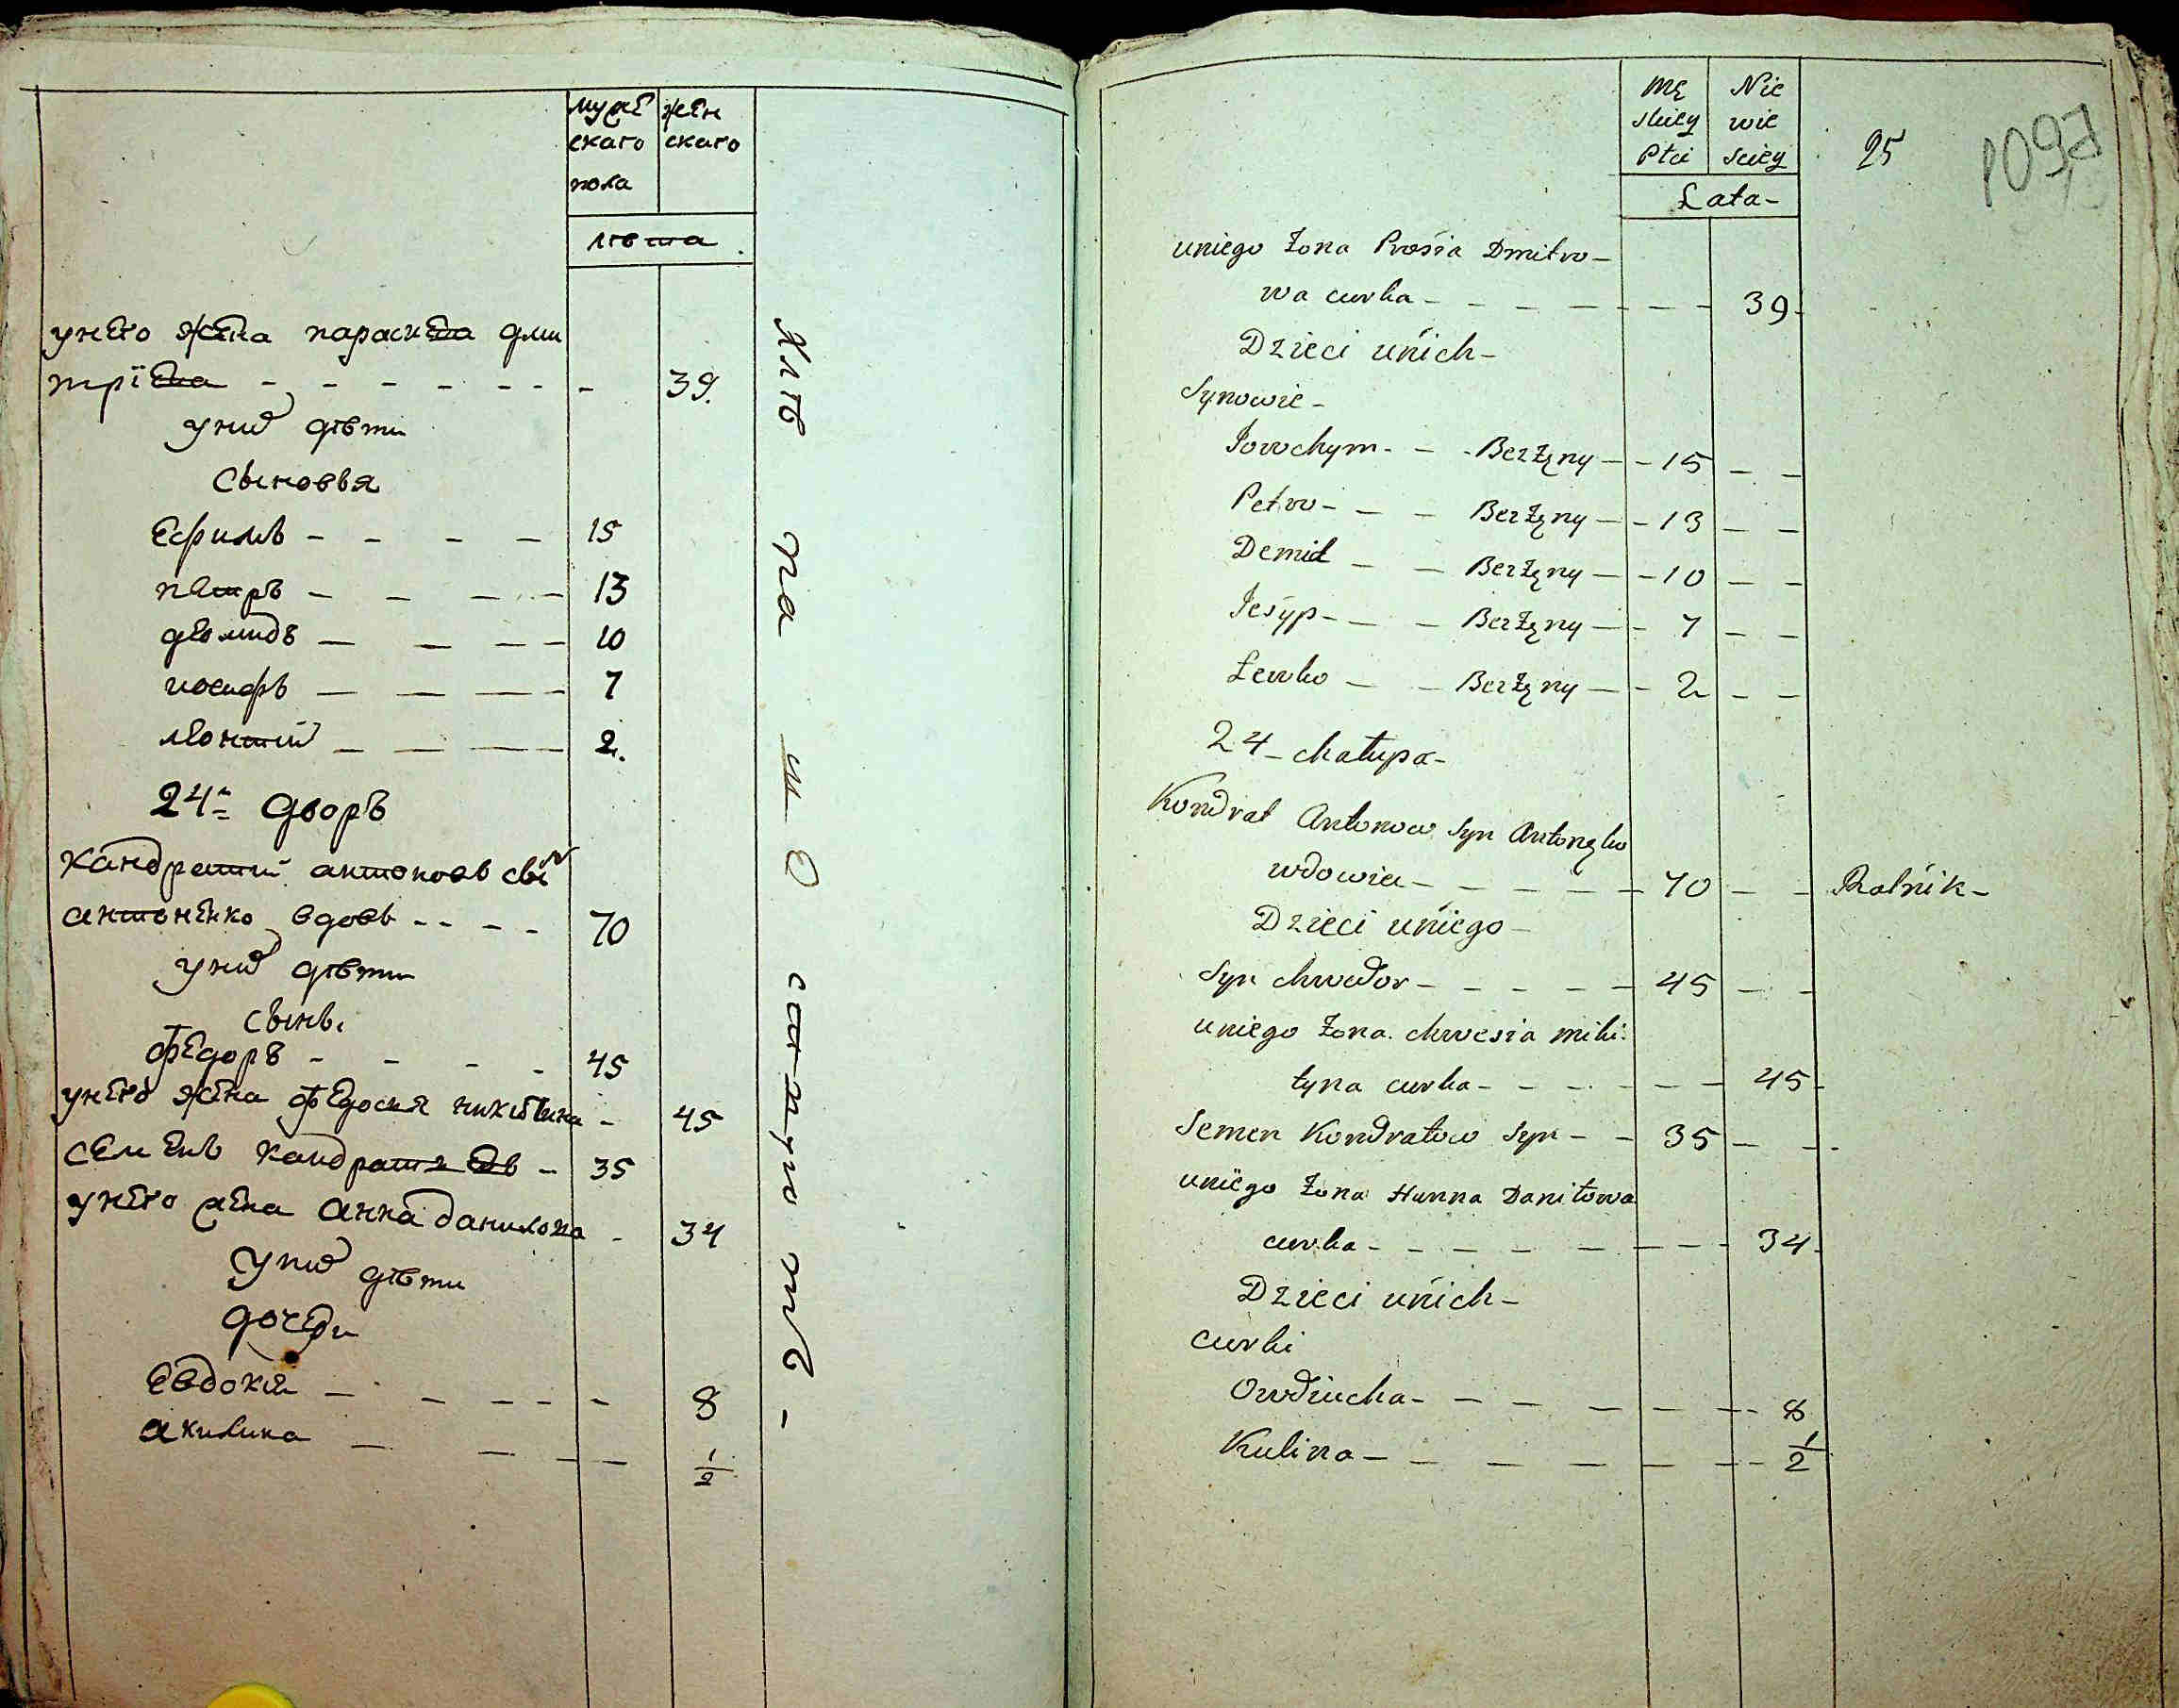 мужескаго пола
женскаго
лѣта
унего жена параскева дми
трїева - - - - - - - 39.
уних дѣти
сыновья
Ефимъ - - - - 15
петръ - - - - 13
деомидъ - - - - 10
иосифъ - - - - 7
леонтий - - - - 2.
24й дворъ
Кандратий антоновъ сын
антоненко вдовъ - - - - 70
уних дѣти
сынъ.
федоръ - - - - 45
унего жена федосия никитина - 45
семенъ кандратьевъ - 35
унего жена анна данилова - 34
Уних дѣти
дочери
Евдокия - - - - - 8
акилина - - - - 1/2
Хлѣ па ш е ст ную тъ -
Mę skiey Płci
Nie wie sciey
Łata-
25
uniego żona Prosia Dmitro-
wa curka - - - - - - - 39-
Dzieci unich-
Synowie -
Jowchym - - - Berżęny - - 15 - -
Petro - - - Berżęny - - 13 - -
Demid - - Berżęny - - 10 - -
Jesyp - - - Berżęny - - 7 - -
Łewko - - Berżęny - - 2 - -
24 - chałupa-
Kondrat Antonow Syn Antonęko
wdowiec - - - - - - 70 - - Rolnik-
Dzieci uniego -
Syn chwedor - - - - - 45 - -
uniego żona. chwesia miki:
tyna curka - - - - - - - 45 -
Semen Kondratow Syn - - 35 - -
uniego żona Hanna Daniłowa
curka - - - - - - - - 34 -
Dzieci unich-
curki
Owdiucha - - - - - - - 8
Kulina - - - - - - - 1/2